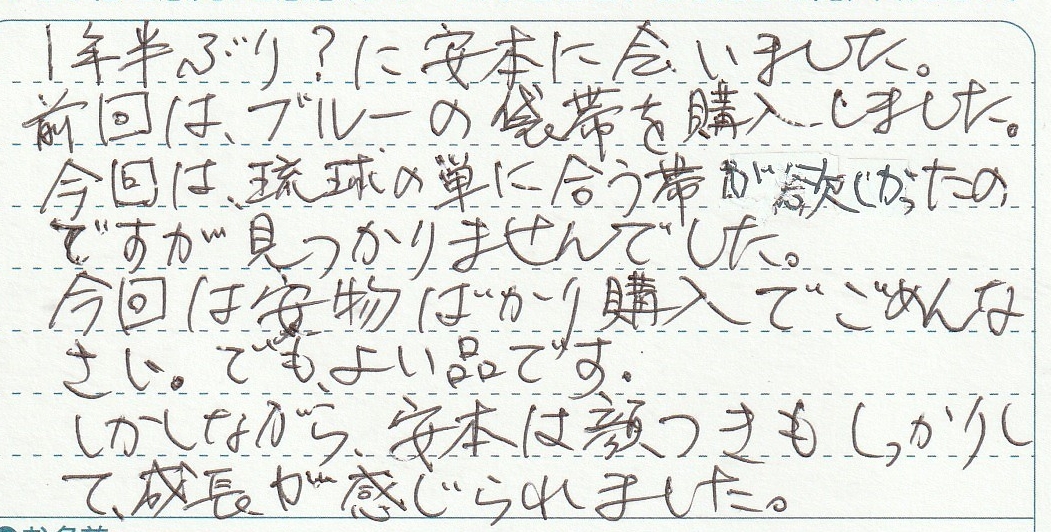 1年半ぶり?に安本に会いました。
前回は、ブルーの袋帯を購入しました。
今回は、琉球の単に合う帯が欲しかったの
ですが見つかりませんでした。
今回は安物ばかり購入でごめんな
さい。でも、よい品です。
しかしながら、安本は顔つきもしっかりし
て、成長が感じられました。